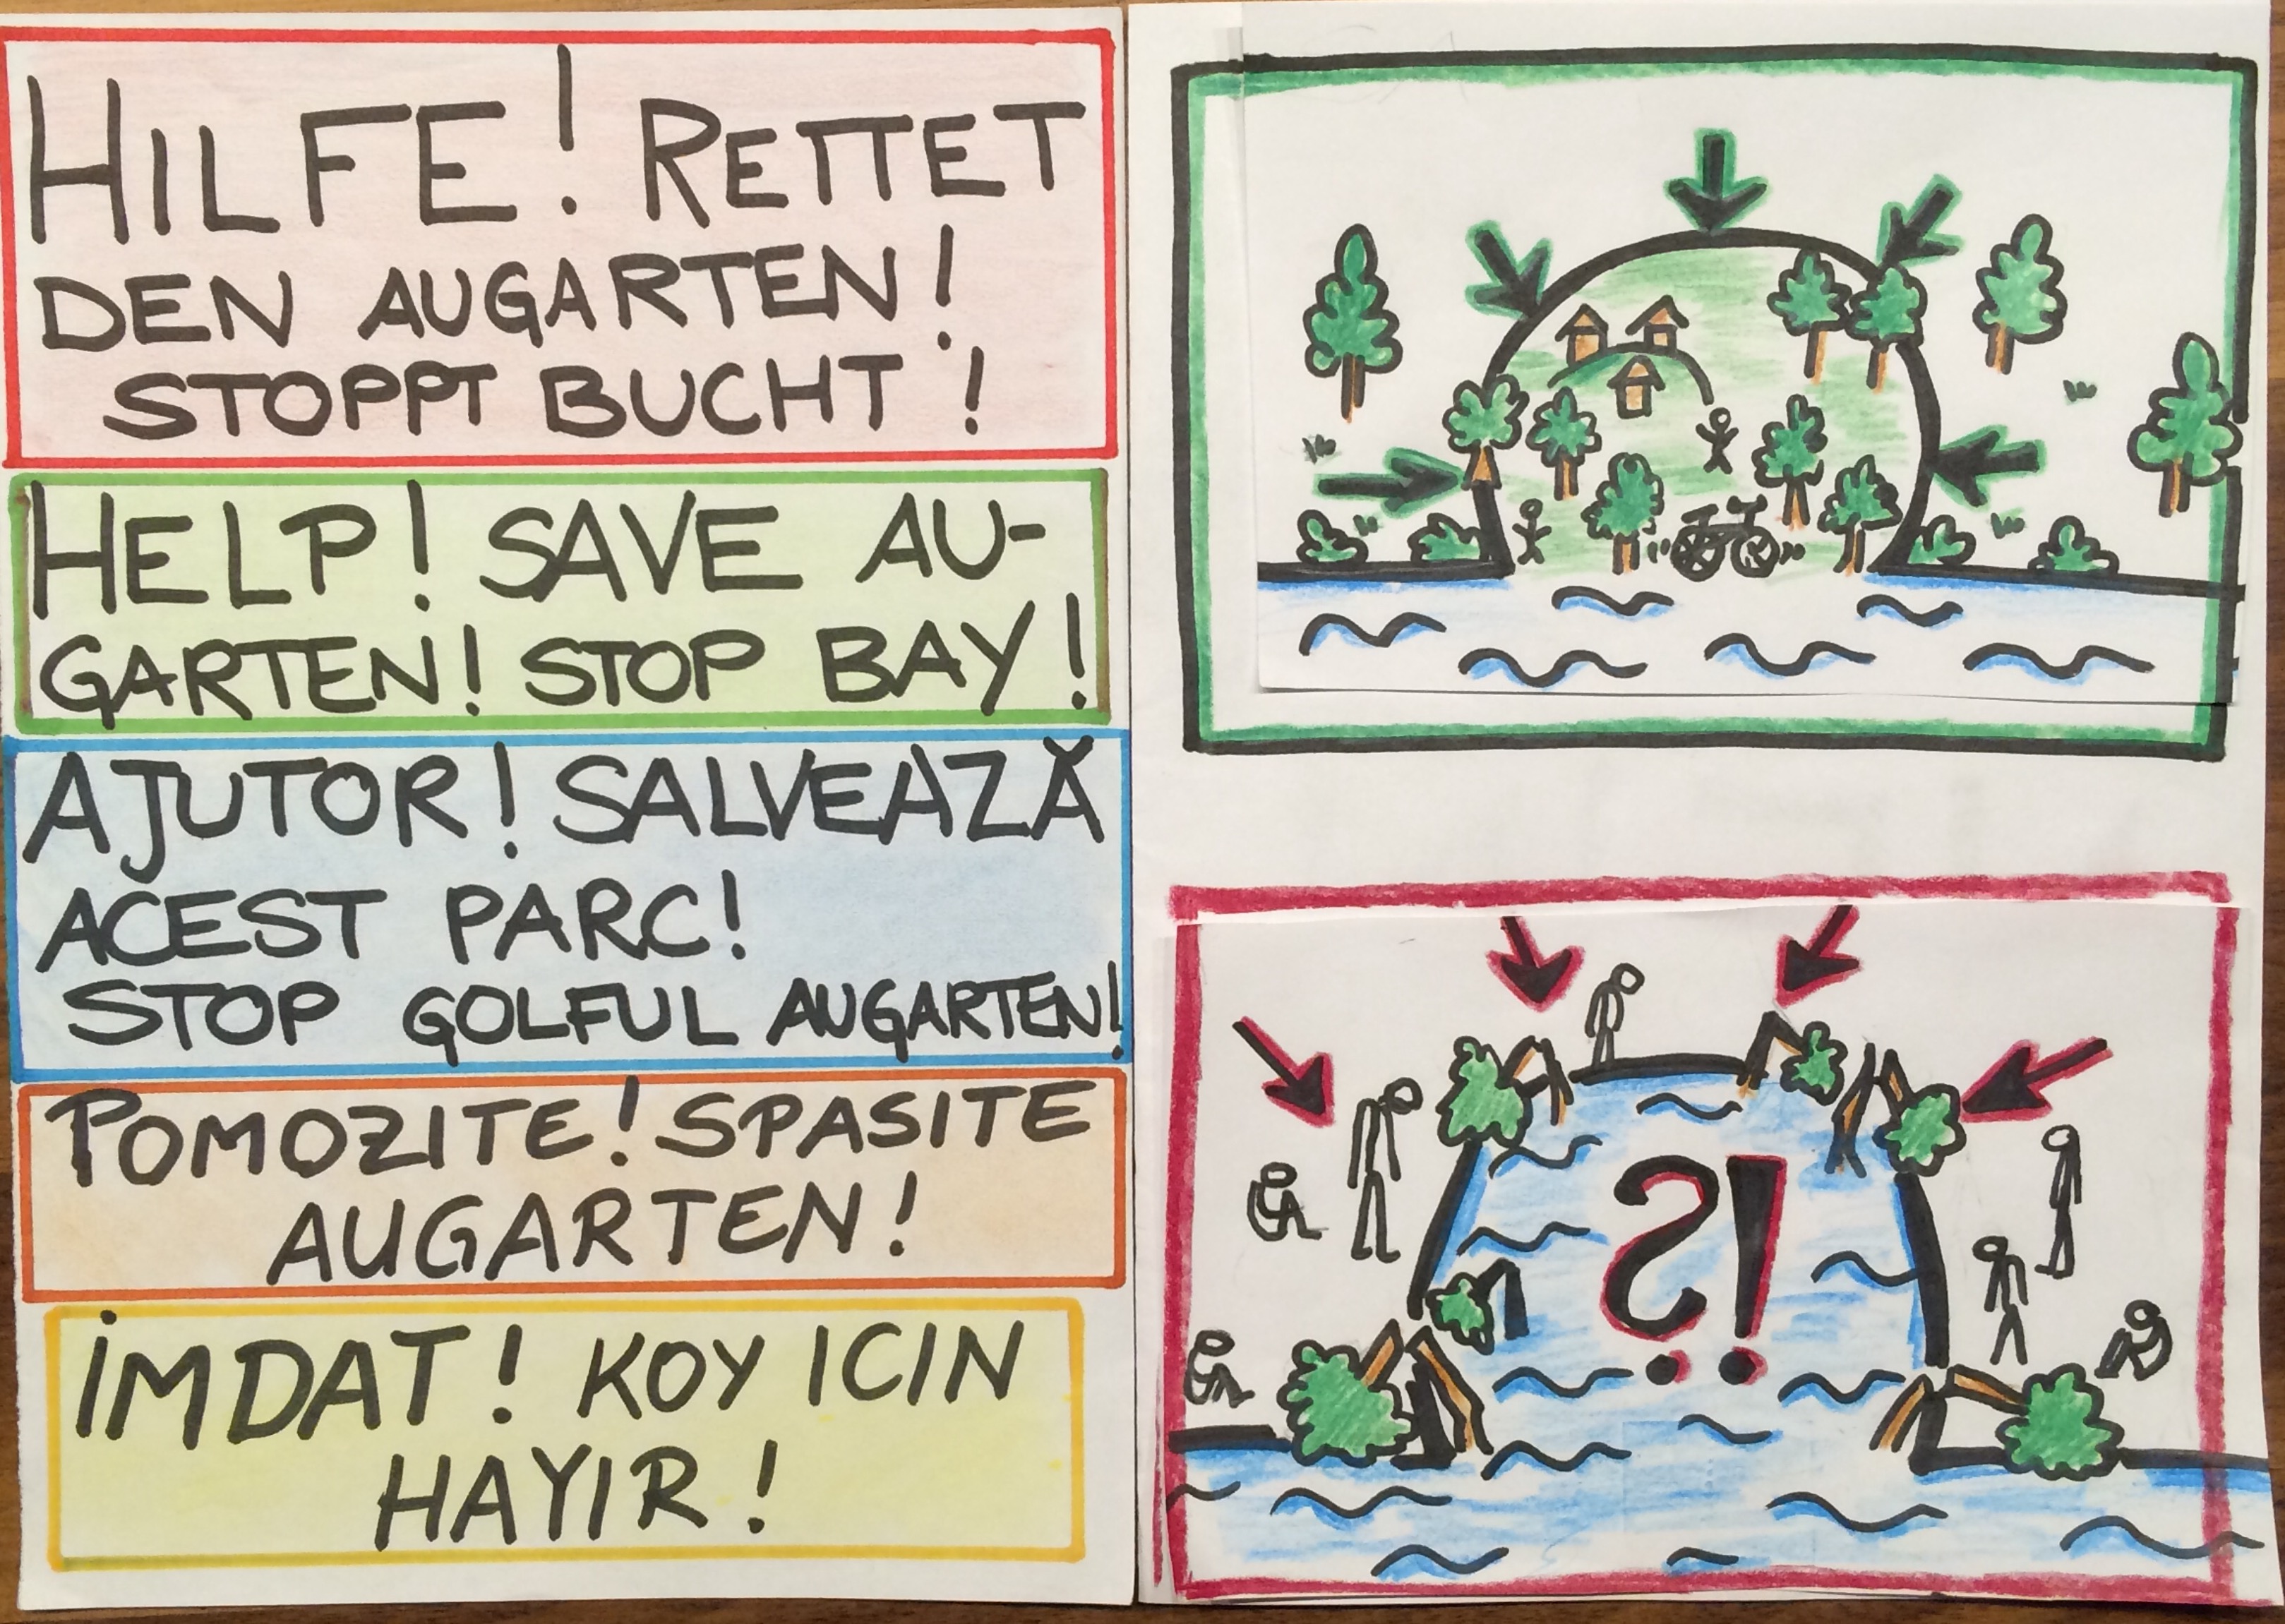 HILFE! RETTET
DEN AUGARTEN!
STOPPT BUCHT!
HELP! SAVE AU-
GARTEN! STOP BAY!
AJUTOR! SALVEAZĂ
ACEST PARC!
STOP GOLFUL AUGARTEN!
POMOZITE! SPASITE
AUGARTEN!
İMDAT! KOY ICIN
HAYIR!
?!